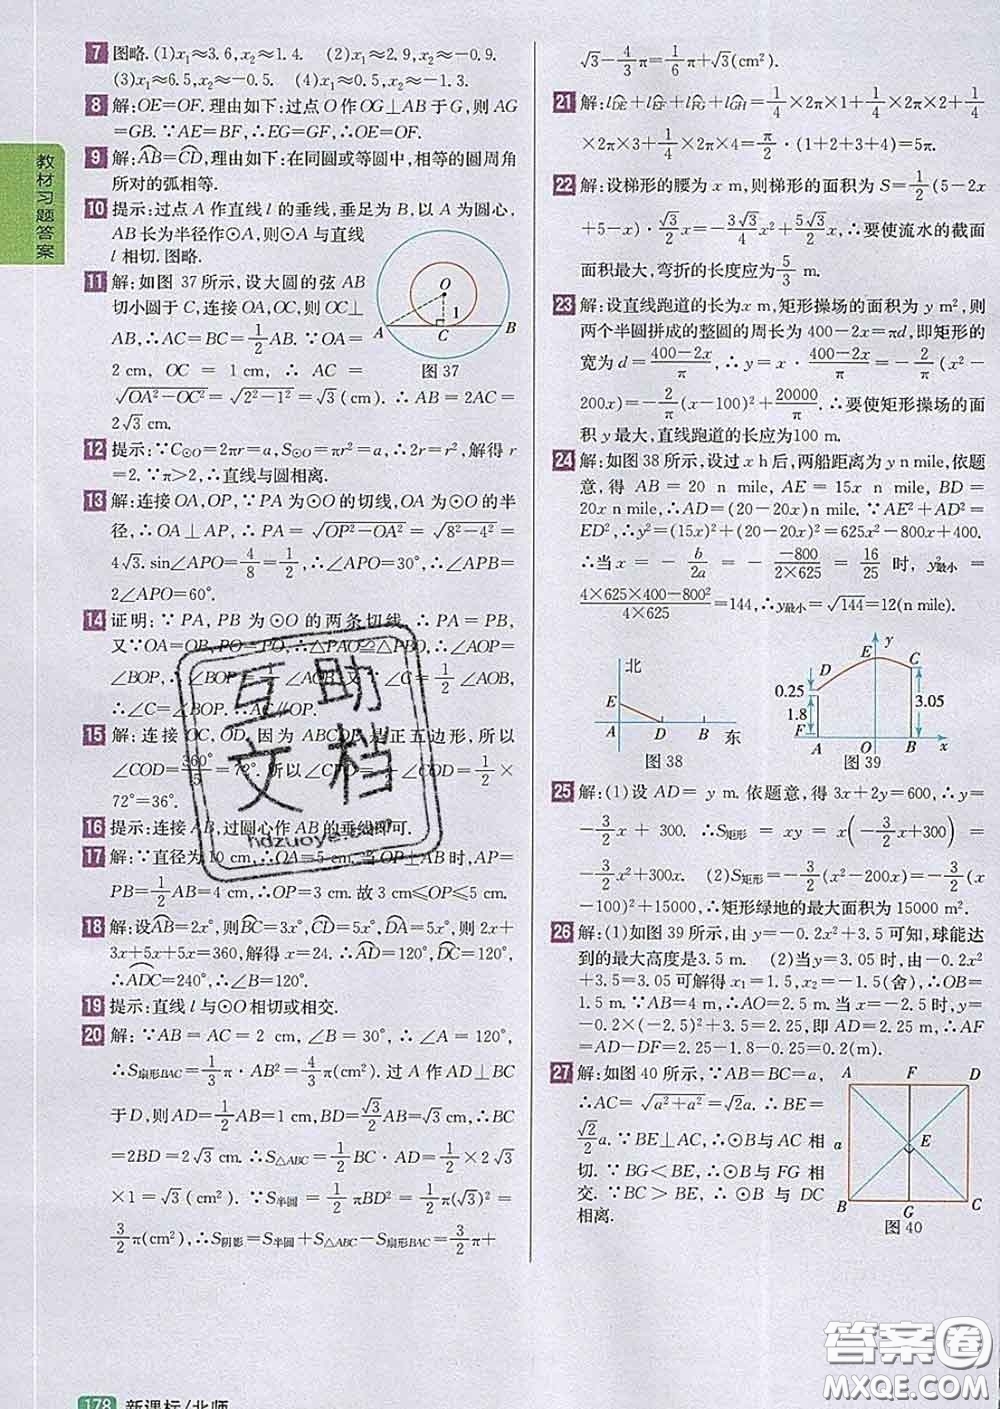 教材习题答案
7 图略.(1)x₁≈3.6,x₂≈1.4. (2)x₁≈2,x₂≈-0.9.
(3)x₁≈6.5,x₂≈-0.5. (4)x₁≈0.5,x₂≈-1.3.
8 解:OE=OF.理由如下:过点O作OG⊥AB于G,则AG
=GB.∵AE=BF,∴EG=GF.∴OE=OF.
9 解:⌒AB=⌒CD,理由如下:在同圆或等圆中,相等的圆周角
所对的弧相等.
10 提示:过点A作直线l的垂线,垂足为B,以A为圆心,
AB长为半径作⊙A,则⊙A与直线
l相切.图略.
11 解:如图37所示,设大圆的弦AB
切小圆于C,连接OA,OC,则OC⊥
AB,∴AC=BC=1/2AB.∵OA=
2 cm, OC = 1 cm, ∴ AC =
√(OA²-OC²)=√(2²-1²)=√3(cm).∴AB=2AC=
2√3 cm.
O
1
A C B
图37
12 提示:∵C⊙O=2πr=a,S⊙O=πr²=a,∴2r=r²,解得r
=2.∵π>2,∴直线与圆相离.
13 解:连接OA,OP,∵PA为⊙O的切线,OA为⊙O的半
径,∴OA⊥AP,∴PA=√(OP²-OA²)=√(8²-4²)=
4√3.sin∠APO=4/8=1/2,∴∠APO=30°,∴∠APB=
2∠APO=60°.
14 证明:∵PA,PB为⊙O的两条切线,∴PA=PB.
又∵OA=OB,PO=PO,∴△PAO≌△PBO,∴∠AOP=
∠BOP,∴∠BOP=1/2∠AOB.又∵∠C=1/2∠AOB,
∴∠C=∠BOP,∴AC∥OP.
15 解:连接OC,OD.因为ABCDE是正五边形,所以
∠COD=360°/5=72°.所以∠CPD=1/2∠COD=1/2×
72°=36°.
16 提示:连接AB,过圆心作AB的垂线即可.
17 解:∵直径为10 cm,∴OA=5 cm.当OP⊥AB时,AP=
PB=1/2AB=4 cm,∴OP=3 cm.故3 cm≤OP≤5 cm.
18 解:设⌒AB=2x°,则⌒BC=3x°,⌒CD=5x°,⌒DA=5x°,则2x+
3x+5x+5x=360,解得x=24.∴⌒AD=120°,⌒DC=120°,
∴⌒ADC=240°,∴∠B=120°.
19 提示:直线l与⊙O相切或相交.
20 解:∵AB=AC=2 cm,∠B=30°,∴∠A=120°,
∴S扇形BAC=1/3π·AB²=4/3π(cm²).过A作AD⊥BC
于D,则AD=1/2AB=1 cm,BD=√3/2AB=√3 cm,∴BC
=2BD=2√3 cm,∴S△ABC=1/2BC·AD=1/2×2√3
×1=√3(cm²).∵S半圆=1/2πBD²=1/2π(√3)²=
3/2π(cm²),∴S阴影=S半圆+S△ABC-S扇形BAC=3/2π+
√3-4/3π=1/6π+√3(cm²).
21 解:l⌒DE+l⌒EF+l⌒FG+l⌒GH=1/4×2π×1+1/4×2π×2+1/4
×2π×3+1/4×2π×4=π/2·(1+2+3+4)=5π.
22 解:设梯形的腰为x m,则梯形的面积为S=1/2(5-2x
+5-x)·√3/2x=-3√3/4x²+5√3/2x,∴要使流水的截面
面积最大,弯折的长度应为5/3 m.
23 解:设直线跑道的长为x m,矩形操场的面积为y m²,则
两个半圆拼成的整圆的周长为400-2x=πd,即矩形的
宽为d=(400-2x)/π,∴y=x·(400-2x)/π=-2/π(x²-
200x)=-2/π(x-100)²+20000/π.∴要使矩形操场的面
积y最大,直线跑道的长应为100 m.
24 解:如图38所示,设过x h后,两船距离为y n mile,依题
意,得AB=20 n mile,AE=15x n mile,BD=
20x n mile,∴AD=(20-20x)n mile.∵AE²+AD²=
ED²,∴y²=(15x)²+(20-20x)²=625x²-800x+400.
∴当x=-b/2a=-(-800)/(2×625)=16/25时,y²最小=
(4×625×400-800²)/(4×625)=144,∴y最小=√144=12(n mile).
北
E
A D B 东
图38
y
E
D C
0.25
1.8
3.05
F
A O B x
图39
25 解:(1)设AD=y m.依题意,得3x+2y=600,∴y=
-3/2x+300.∴S矩形=xy=x(-3/2x+300)=
-3/2x²+300x. (2)S矩形=-3/2(x²-200x)=-3/2(x
-100)²+15000,∴矩形绿地的最大面积为15000 m².
26 解:(1)如图39所示,由y=-0.2x²+3.5可知,球能达
到的最大高度是3.5 m. (2)当y=3.05时,由-0.2x²
+3.5=3.05可解得x₁=1.5,x₂=-1.5(舍),∴OB=
1.5 m.∵AB=4 m,∴AO=2.5 m.当x=-2.5时,y=
-0.2×(-2.5)²+3.5=2.25,即AD=2.25 m,∴AF
=AD-DF=2.25-1.8-0.25=0.2(m).
27 解:如图40所示,∵AB=BC=a,
∴AC=√(a²+a²)=√2a.∴BE=
√2/2a.∵BE⊥AC,∴⊙B与AC相
切.∵BG<BE,∴⊙B与FG相
交.∵BC>BE,∴⊙B与DC
相离.
A F D
a E
B G C
图40
互助
文档
hdzuoye.com
178 新课标/北师
答案圈
MXQE.COM